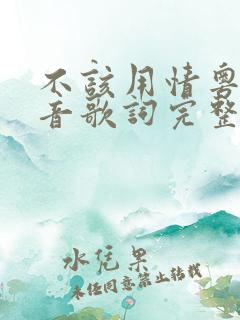 不該用情粵
音歌詞完整
水凭果
未经同意禁止转载